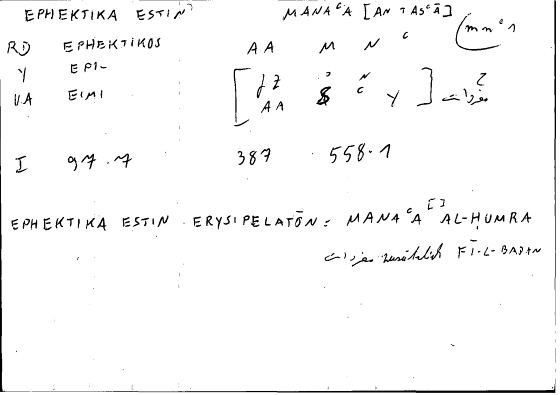 EPHEKTIKA ESTIN MANAʿA [AN TASʿĀ] (mnʿ1
RD EPHEKTIKOS AA M N ʿ
Y EPI-
VA EIMI AA ʿ Y ] مفردات
I 97.7 387 558.1
EPHEKTIKA ESTIN ERYSIPELATŌN: MANAʿA [] AL-ḤUMRA
مفردات zusätzlich FĪ-L-BADAN